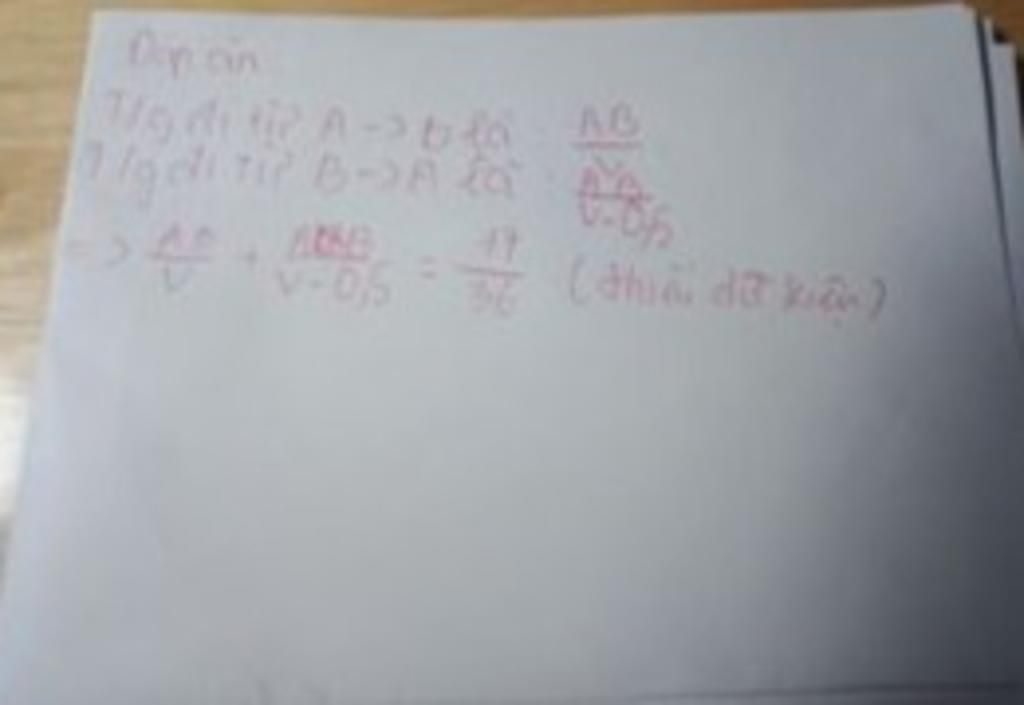 Đáp án
T/g đi từ A -> b là : AB/V
T/g đi từ B -> A là : AB/V-0,5
=> AB/V + AB/V-0,5 = /36 (thiếu dữ kiện)